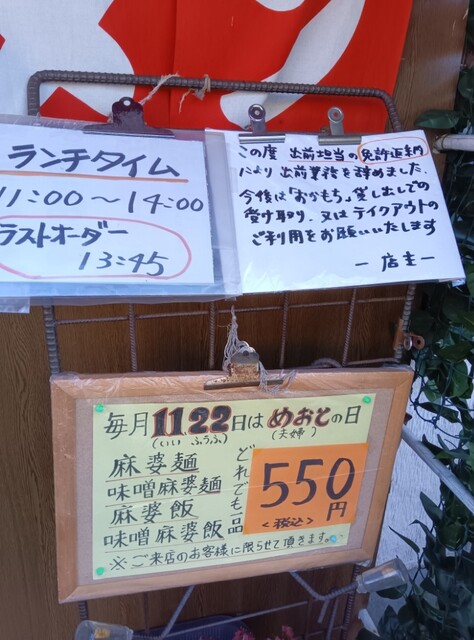 ランチタイム
11:00〜14:00
ラストオーダー
13:45
この度 出前担当の免許返納
により出前業務を辞めました.
今後は「おかもち」貸し出しでの
受け取り、又はテイクアウトの
ご利用をお願いいたします
ー店主ー
毎月11.22日はめおとの日
(いい ふうふ) (夫婦)
麻婆麺
味噌麻婆麺
麻婆飯
味噌麻婆飯
どれでも一品
550円
<税込>
※ご来店のお客様に限らせて頂きます。